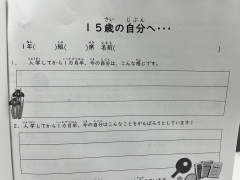 15歳の自分へ・・・
1年( )組( )番 名前( )
1. 入学してから1カ月半、今の自分は、こんな感じです。
2. 入学してから1カ月半、今の自分はこんなことをがんばろうとしています！